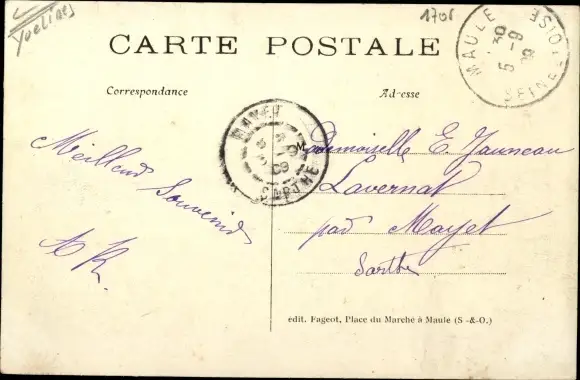 Yvelines
1708
CARTE POSTALE
MAULE
SEINE-ET-OISE
5 -9
09
Correspondance
Adresse
MAYET
SARTHE
09
Meilleurs Souvenirs
Mademoiselle E. Jauneau
Lavernat
par Mayet
Sarthe
edit. Fageot, Place du Marché à Maule (S-&-O.)